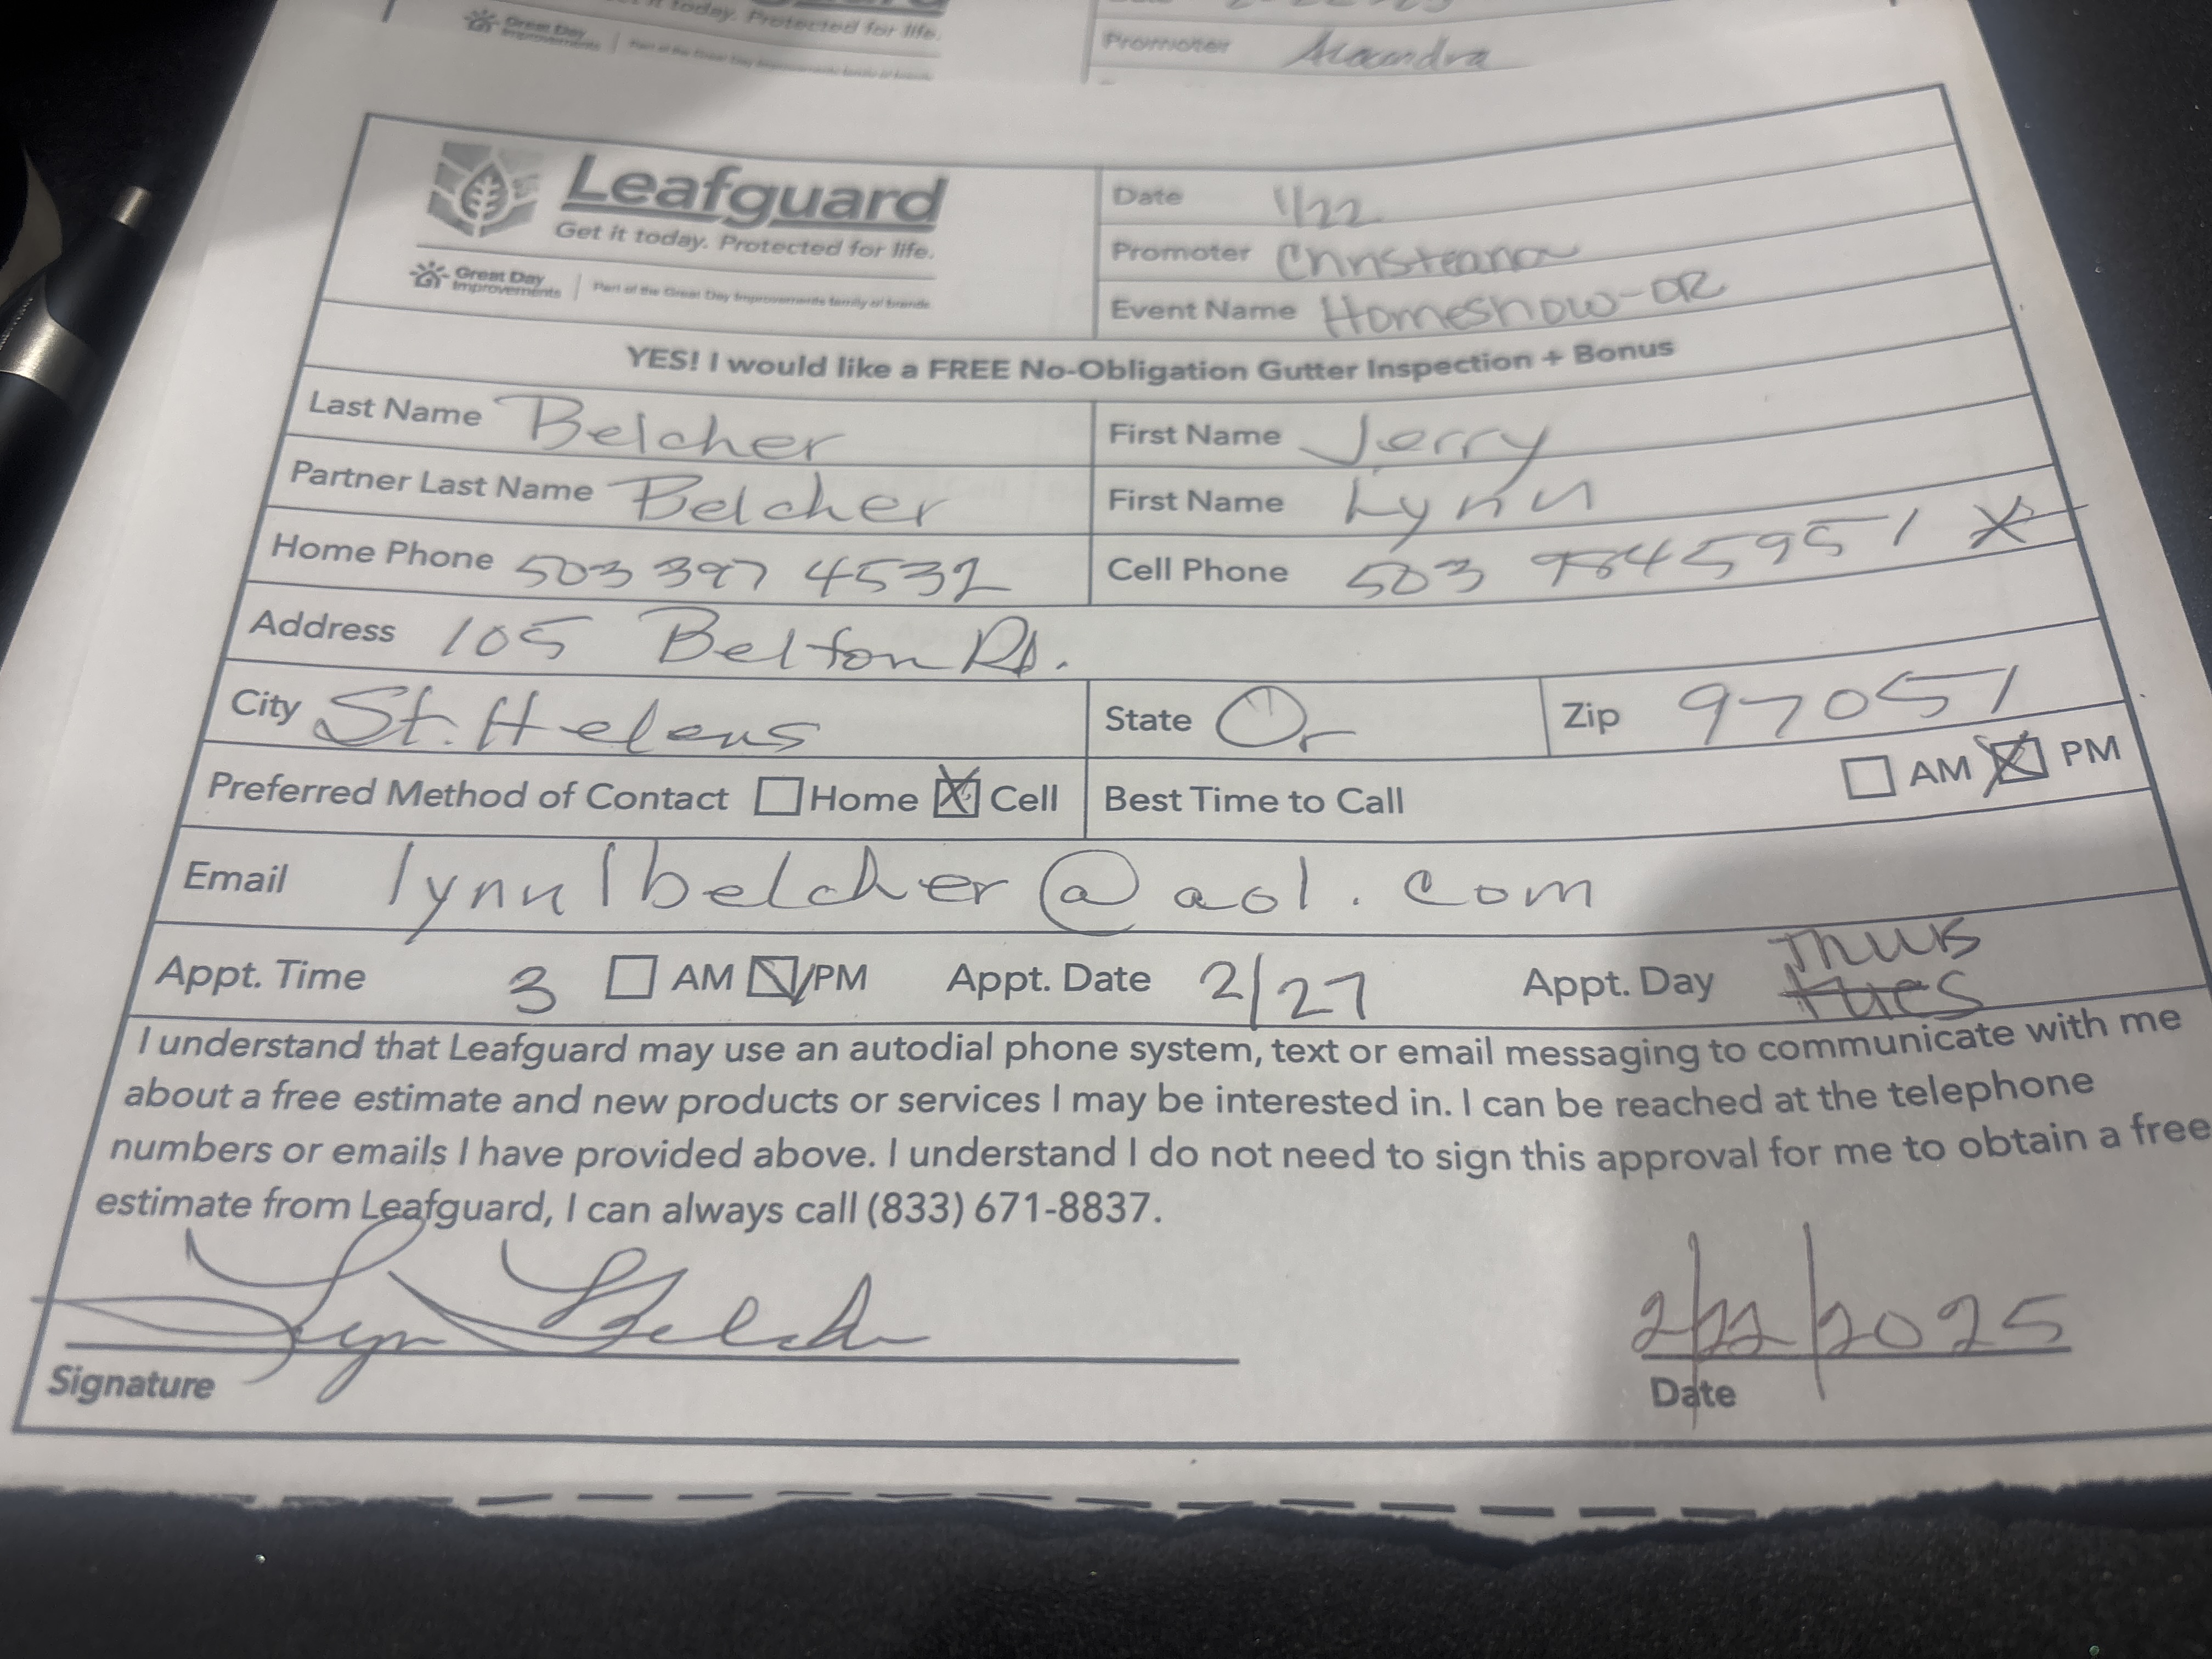 Leafguard
Get it today. Protected for life.
Great Day Improvements | Part of the Great Day Improvements family of brands
Date
Promoter Christiana
Event Name Homeshow-OR
YES! I would like a FREE No-Obligation Gutter Inspection + Bonus
Last Name Belcher First Name Jerry
Partner Last Name Belcher First Name Lynn
Home Phone 503 397 4532 Cell Phone 503
Address 105 Belton Rd.
City St. Helens State Or Zip 97051
Preferred Method of Contact Home Cell Best Time to Call AM PM
Email lynnlbelcher@aol.com
Appt. Time 3 AM PM Appt. Date 2/27 Appt. Day Thurs
I understand that Leafguard may use an autodial phone system, text or email messaging to communicate with me
about a free estimate and new products or services I may be interested in. I can be reached at the telephone
numbers or emails I have provided above. I understand I do not need to sign this approval for me to obtain a free
estimate from Leafguard, I can always call (833) 671-8837.
Signature Date
Promoter